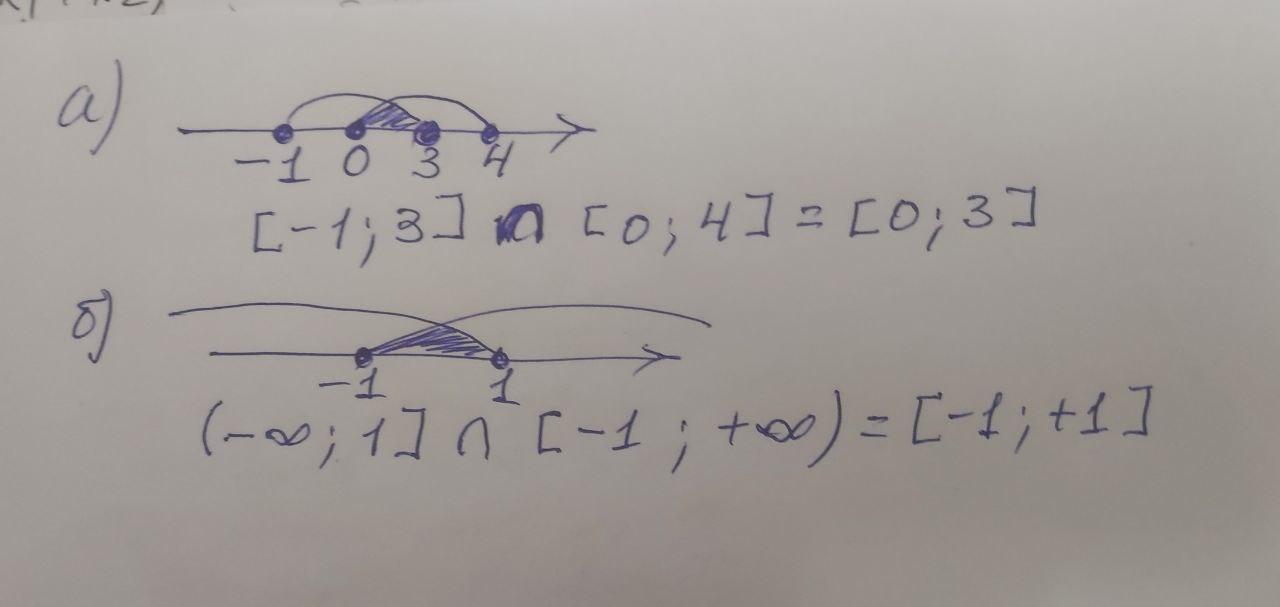 а)
-1 0 3 4
[-1; 3] ∩ [0; 4] = [0; 3]
б)
-1 1
(-∞; 1] ∩ [-1; +∞) = [-1; +1]